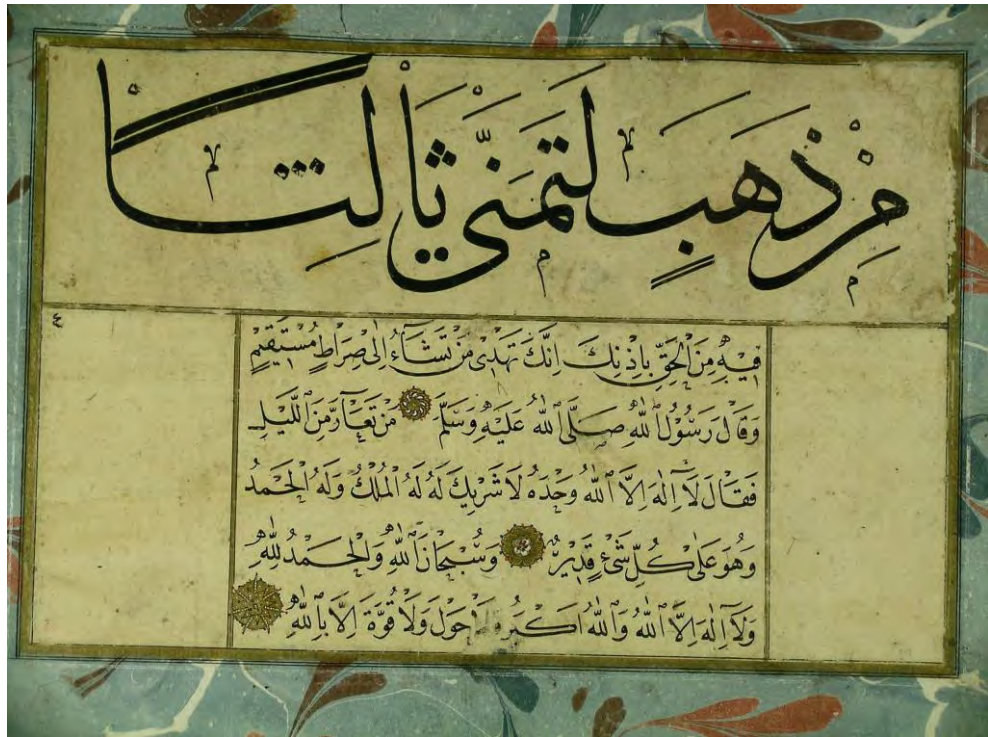 مِنْ ذَهَبٍ لَتَمَنَّىٰ ثَالِثًا
٤
فِيهِ مِنَ الْحَقِّ بِاِذْنِكَ اِنَّكَ تَهْدِى مَنْ تَشَاءُ اِلٰى صِرَاطٍ مُسْتَقِيمٍ
وَقَالَ رَسُولُ اللّٰهِ صَلَّى اللّٰهُ عَلَيْهِ وَسَلَّمَ مَنْ تَعَارَّ مِنَ اللَّيْلِ
فَقَالَ لَا اِلٰهَ اِلَّا اللّٰهُ وَحْدَهُ لَا شَرِيكَ لَهُ لَهُ الْمُلْكُ وَلَهُ الْحَمْدُ
وَهُوَ عَلٰى كُلِّ شَىْءٍ قَدِيرٌ وَسُبْحَانَ اللّٰهِ وَالْحَمْدُ لِلّٰهِ
وَلَا اِلٰهَ اِلَّا اللّٰهُ وَاللّٰهُ اَكْبَرُ وَلَا حَوْلَ وَلَا قُوَّةَ اِلَّا بِاللّٰهِ